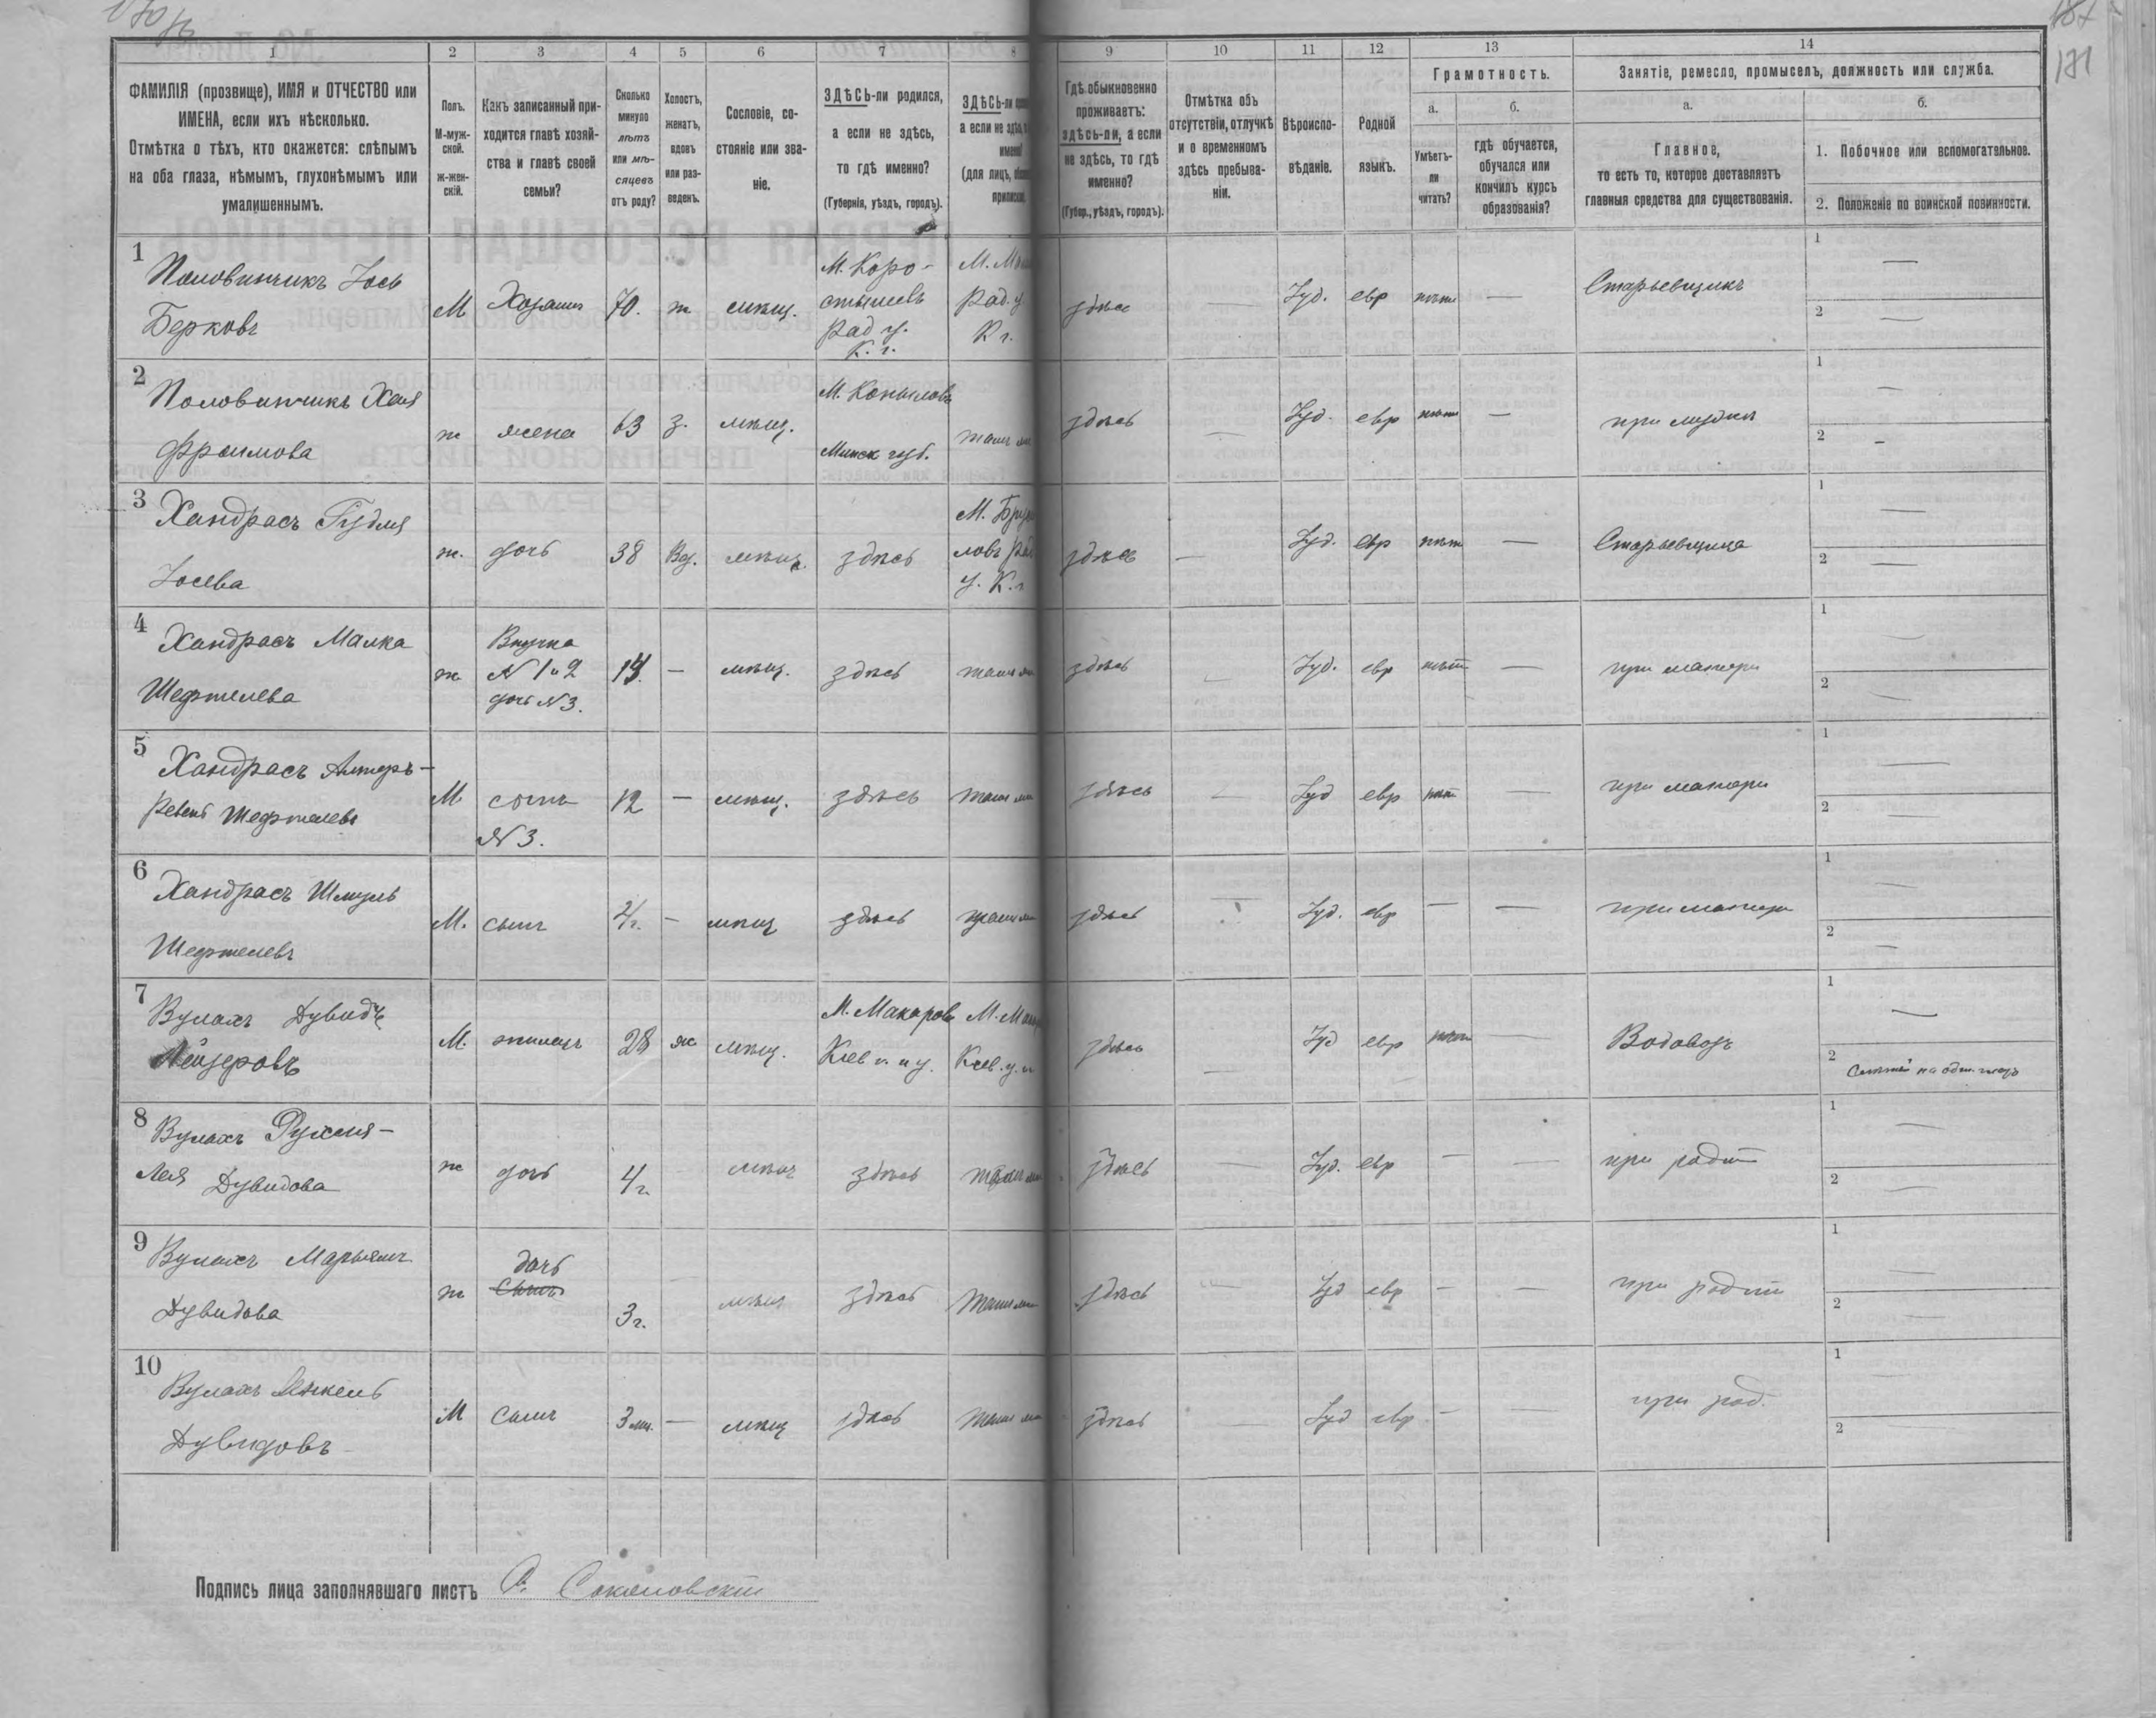 1 2 3 4 5 6 7 8 9 10 11 12 13 14
ФАМИЛІЯ (прозвище), ИМЯ и ОТЧЕСТВО или
ИМЕНА, если ихъ нѣсколько.
Отмѣтка о тѣхъ, кто окажется: слѣпымъ
на оба глаза, нѣмымъ, глухонѣмымъ или
умалишеннымъ.
Полъ.
М-муж-
ской.
Ж-жен-
скій.
Какъ записанный при-
ходится главѣ хозяй-
ства и главѣ своей
семьи?
Сколько
минуло
лѣтъ
или мѣ-
сяцевъ
отъ роду?
Холостъ,
женатъ,
вдовъ
или раз-
веденъ.
Сословіе, со-
стояніе или зва-
ніе.
ЗДѢСЬ-ли родился,
а если не здѣсь,
то гдѣ именно?
(Губернія, уѣздъ, городъ).
ЗДѢСЬ-ли
а если не
(для лицъ,
Гдѣ обыкновенно
проживаетъ:
здѣсь-ли, а если
не здѣсь, то гдѣ
именно?
(Губер., уѣздъ, городъ).
Отмѣтка объ
отсутствіи, отлучкѣ
и о временномъ
здѣсь пребыва-
ніи.
Вѣроиспо-
вѣданіе.
Родной
языкъ.
Грамотность.
а. б.
Умѣетъ-
ли
читать?
гдѣ обучается,
обучался или
кончилъ курсъ
образованія?
Занятіе, ремесло, промыселъ, должность или служба.
а. б.
Главное,
то есть то, которое доставляетъ
главныя средства для существованія.
1. Побочное или вспомогательное.
2. Положеніе по воинской повинности.
1
Половинчикъ Іось
Берковъ
М Хозяинъ 70. ж мѣщ.
М. Коро-
стышевъ
Рад у.
К. г.
Рад. у.
К г.
здѣсь — Іуд. евр нѣтъ — Старьевщикъ
1 —
2 —
2
Половинчикъ Хая
Фроимова
ж жена 63 з. мѣщ.
М. Копыловъ
Минск губ.
тамъ
здѣсь — Іуд. евр нѣтъ — при мужѣ
1 —
2 —
3
Хандросъ Гудля
Іосева
ж. дочь 38 Вд. мѣщ. здѣсь
М. Бруси
ловъ Рад
у. К. г
здѣсь — Іуд. евр нѣтъ — Старьевщица
1 —
2 —
4
Хандросъ Малка
Шефтелева
ж
Внучка
N 1 и 2
дочь N 3.
14. — мѣщ. здѣсь тамъ здѣсь — Іуд. евр нѣтъ — при матери
1 —
2 —
5
Хандросъ Алтеръ-
Шефтелевъ
М. сынъ
N 3.
12 — мѣщ. здѣсь тамъ здѣсь — Іуд евр нѣтъ — при матери
1 —
2 —
6
Хандросъ Шмуль
Шефтелевъ
М. сынъ — мѣщ здѣсь тамъ здѣсь — Іуд. евр — — при матери
1 —
2 —
7
Вулахъ Дувидъ
Лейзеровъ
М. жилецъ 28 ж мѣщ.
М. Макаровъ
Кіев г. и у.
М. Мак
Кіев. у. и
здѣсь — Іуд евр нѣтъ — Водовозъ
1 —
2
8
Вулахъ Рухля-
Лея Дувидова
ж дочь 4 г. мѣщ здѣсь тамъ здѣсь — Іуд. евр — — при родит
1 —
2 —
9
Вулахъ Марьямъ
Дувидова
ж дочь
сынъ
3 г. — мѣщ здѣсь тамъ здѣсь — Іуд евр — — при родит
1 —
2 —
10
Вулахъ
Дувидовъ
М сынъ 3 мц. — мѣщ здѣсь тамъ здѣсь — Іуд евр — — при род.
1
2
Подпись лица заполнявшаго листъ Соколовскій